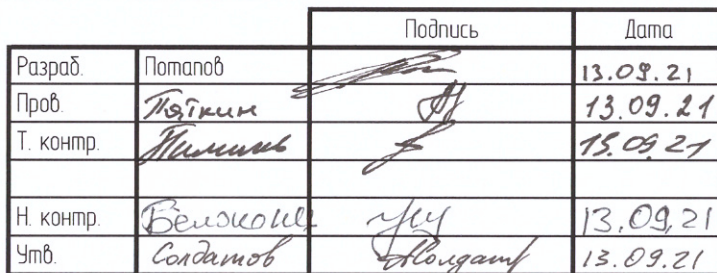 Подпись Дата
Разраб. Потапов 13.09.21
Пров. Пяткин 13.09.21
Т. контр. 15.09.21
Н. контр. 13.09.21
Утв. Солдатов 13.09.21